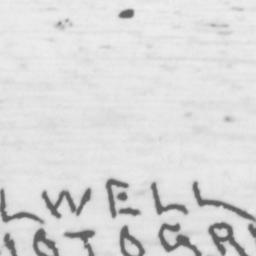 LWELL
OTOGR